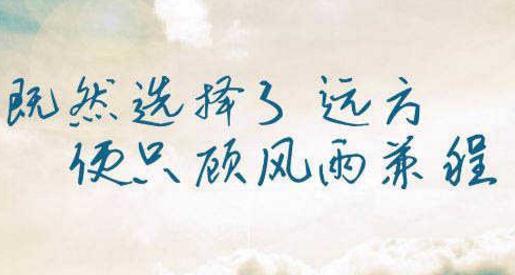 既然选择了 远方
便只顾风雨兼程